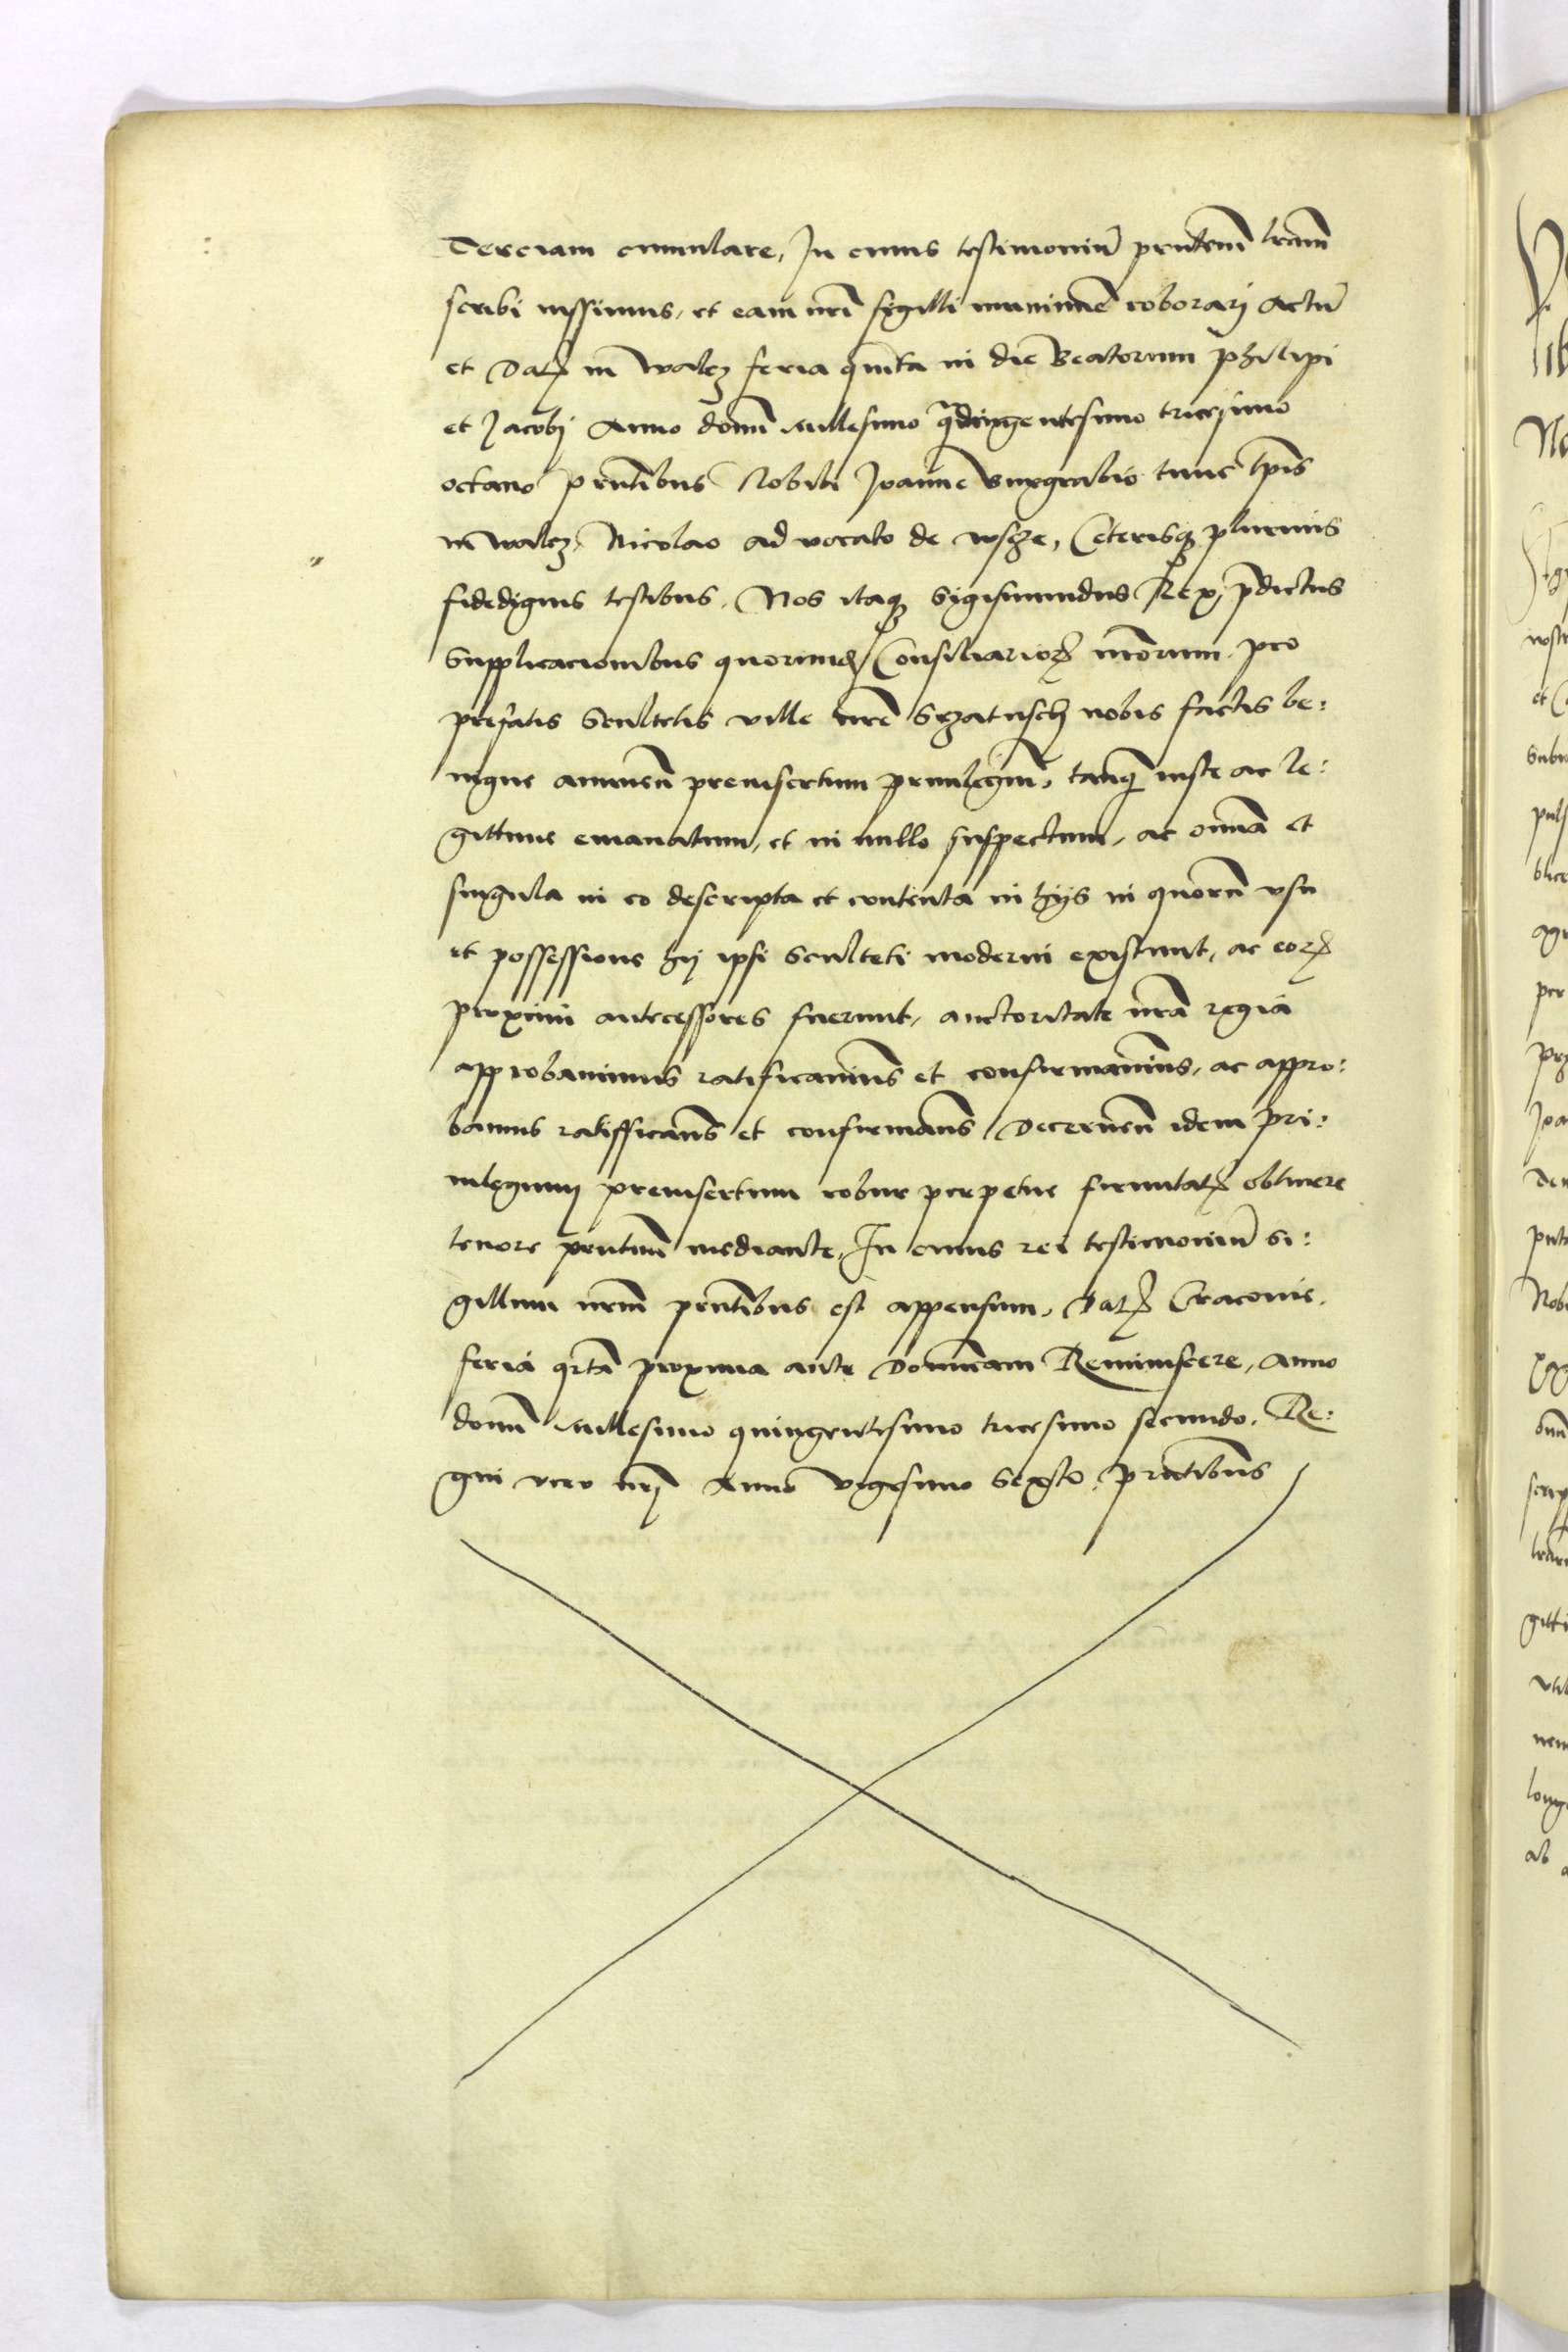 Terciam cumulare, In cuius testimoniũ pñtem lrãm
scribi iussimus, et eam nrĩ sigilli munimẽ roborarj Actũ
et Datꝝ in walcz feria quinta in die Beatorum philipi
et Jacobj Anno domĩ Millesimo qͣdringentesimo tricesimo
octauo pñtibus Nobili Joanne Burgrabio tunc tp̃is
in walcz, Nicolao aduocato de wsze, Ceterisqꝫ plurimis
fidedignis testibus. Nos itaqꝫ Sigismundus Rex, p̃dictus
Supplicacionibus quorumdꝫ Consiliarioꝝ nrõrum pro
prefatis Scultetis ville nrẽ nobis factis be:
nigne annuen̄ preinsertum priuilegiũ, tanqꝫ iuste ac le:
gittime emanatum, et in nullo suspectum, ac omnia et
singula in eo descripta et contenta in hijs in quorũ vsu
et possessione hij ipsi Sculteti moderni existunt, ac eorꝝ
proximi antecessores fuerunt, auctoritate nrã regia
approbauimus ratificauimus et confirmauimus, ac appro:
bamus ratifficamus et confirmamus Decernen̄ idem pri:
uilegium preinsertum robur perpetue firmitatꝫ obtinere
tenore pñtium mediante, In cuius rei testimoniũ si:
gillum nrũm pñtibus est appensum, Datꝝ Cracouie,
feria qrta proxima ante Dominicam Reminiscere, Anno
domĩ Millesimo quingentesimo tricesimo secundo, Re:
gni vero nrj Anno vigesimo Sexto, pñtibus